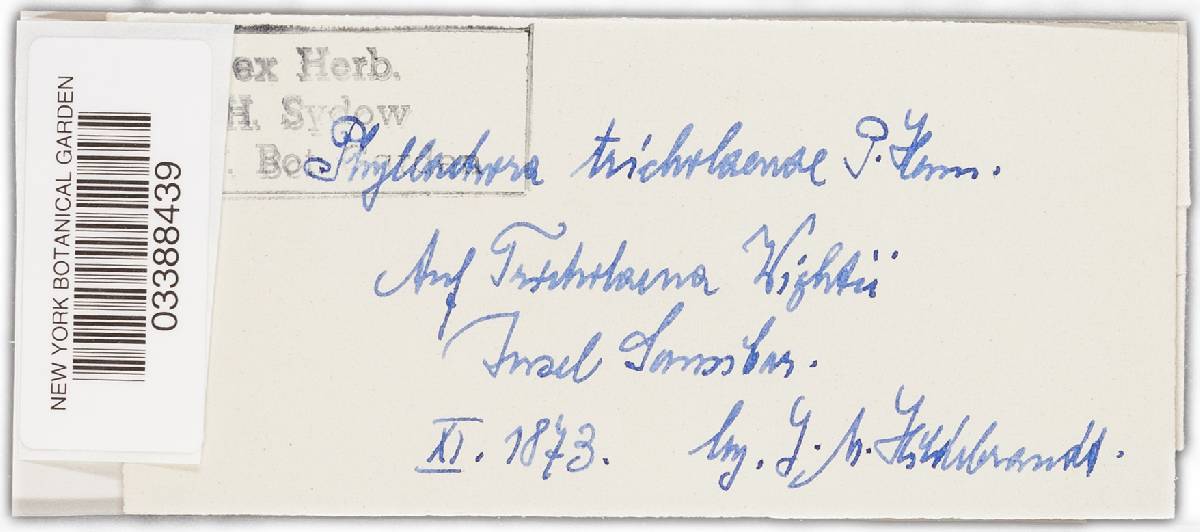 NEW YORK BOTANICAL GARDEN
03388439
ex Herb.
H. Sydow
Bot. Garden
Phyllachora tricholaenae P. Henn.
Auf Tricholaena Wightii
Insel Sansibar.
XI. 1873. leg. J. M. Hildebrandt.